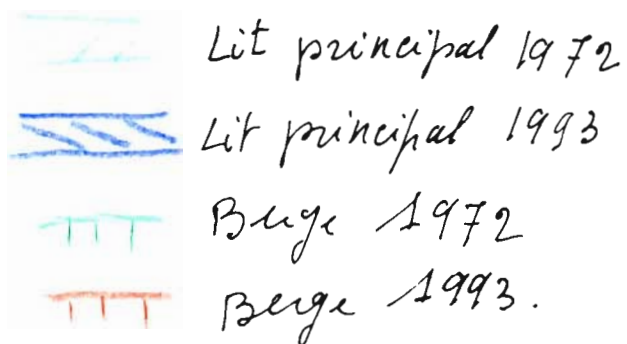 Lit principal 1972
Lit principal 1993
Berge 1972
Berge 1993.